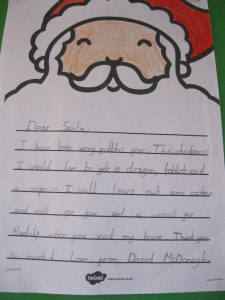 Dear Santa,
I have been very good this year. This christmas
I would love to get a dragon, tablet and
a surprise. I will leave out some cookies
and milk for you and a carrot for
Rudolp when you visit my house. Thank you
so much! Love from, Daniel McDonagh
twinkl www.twinkl.co.uk